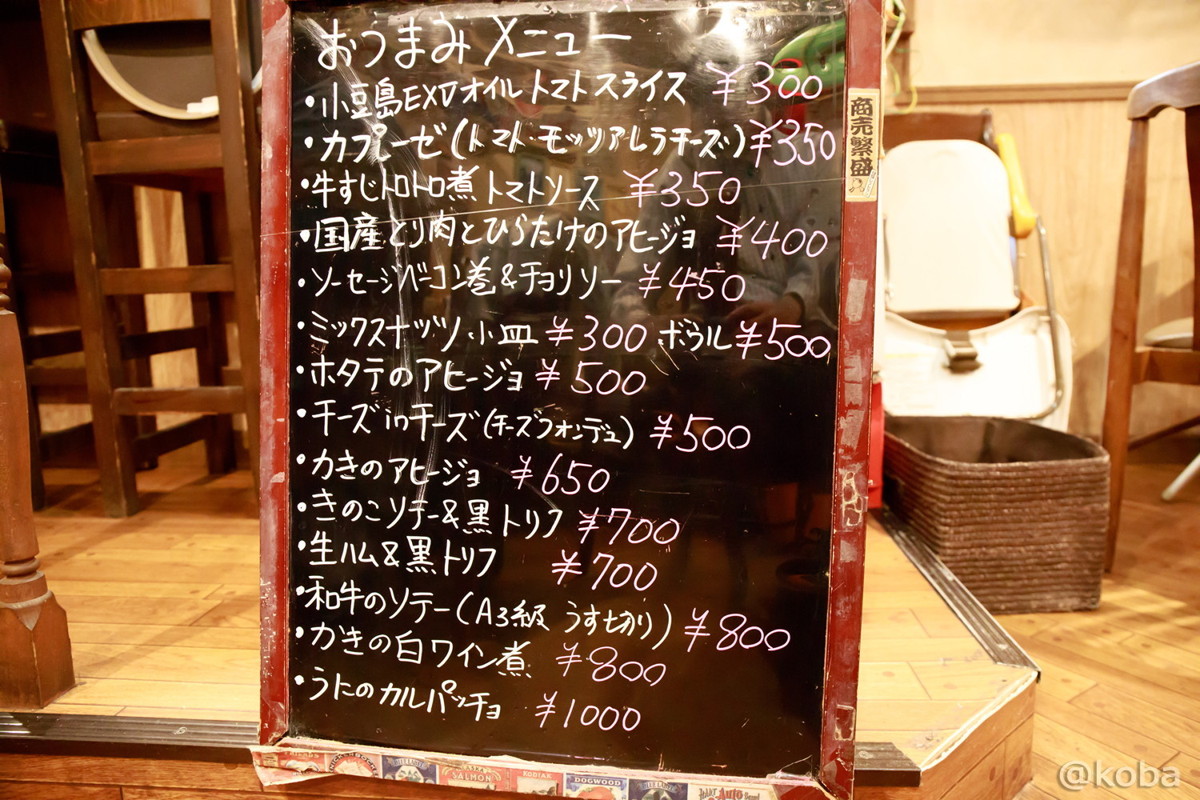 おつまみメニュー
・小豆島EXVオイルトマトスライス ¥300
・カプレーゼ(トマト・モッツアレラチーズ) ¥350
・牛すじトロトロ煮トマトソース ¥350
・国産とり肉とひらたけのアヒージョ ¥400
・ソーセージベーコン巻&チョリソー ¥450
・ミックスナッツ小皿 ¥300 ボウル ¥500
・ホタテのアヒージョ ¥500
・チーズinチーズ(チーズフォンデュ) ¥500
・かきのアヒージョ ¥650
・きのこソテー&黒トリフ ¥700
・生ハム&黒トリフ ¥700
・和牛のソテー(A3級 うす切り) ¥800
・かきの白ワイン煮 ¥800
・うにのカルパッチョ ¥1000
商売繁盛
SALMON
KODIAK
DOGWOOD
@koba